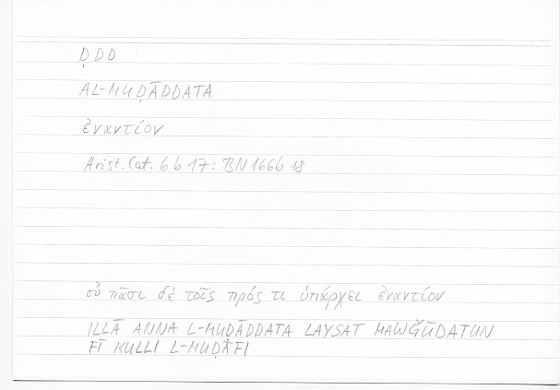 ḌDD
AL-MUḌĀDDATA
ἐναντίον
Arist. Cat. 6 b 17 : BN 166b 18
οὐ πᾶσι δὲ τοῖς πρός τι ὑπάρχει ἐναντίον
ILLĀ ANNA L-MUḌĀDDATA LAYSAT MAWǦŪDATUN
FĪ KULLI L-MUḌĀFI